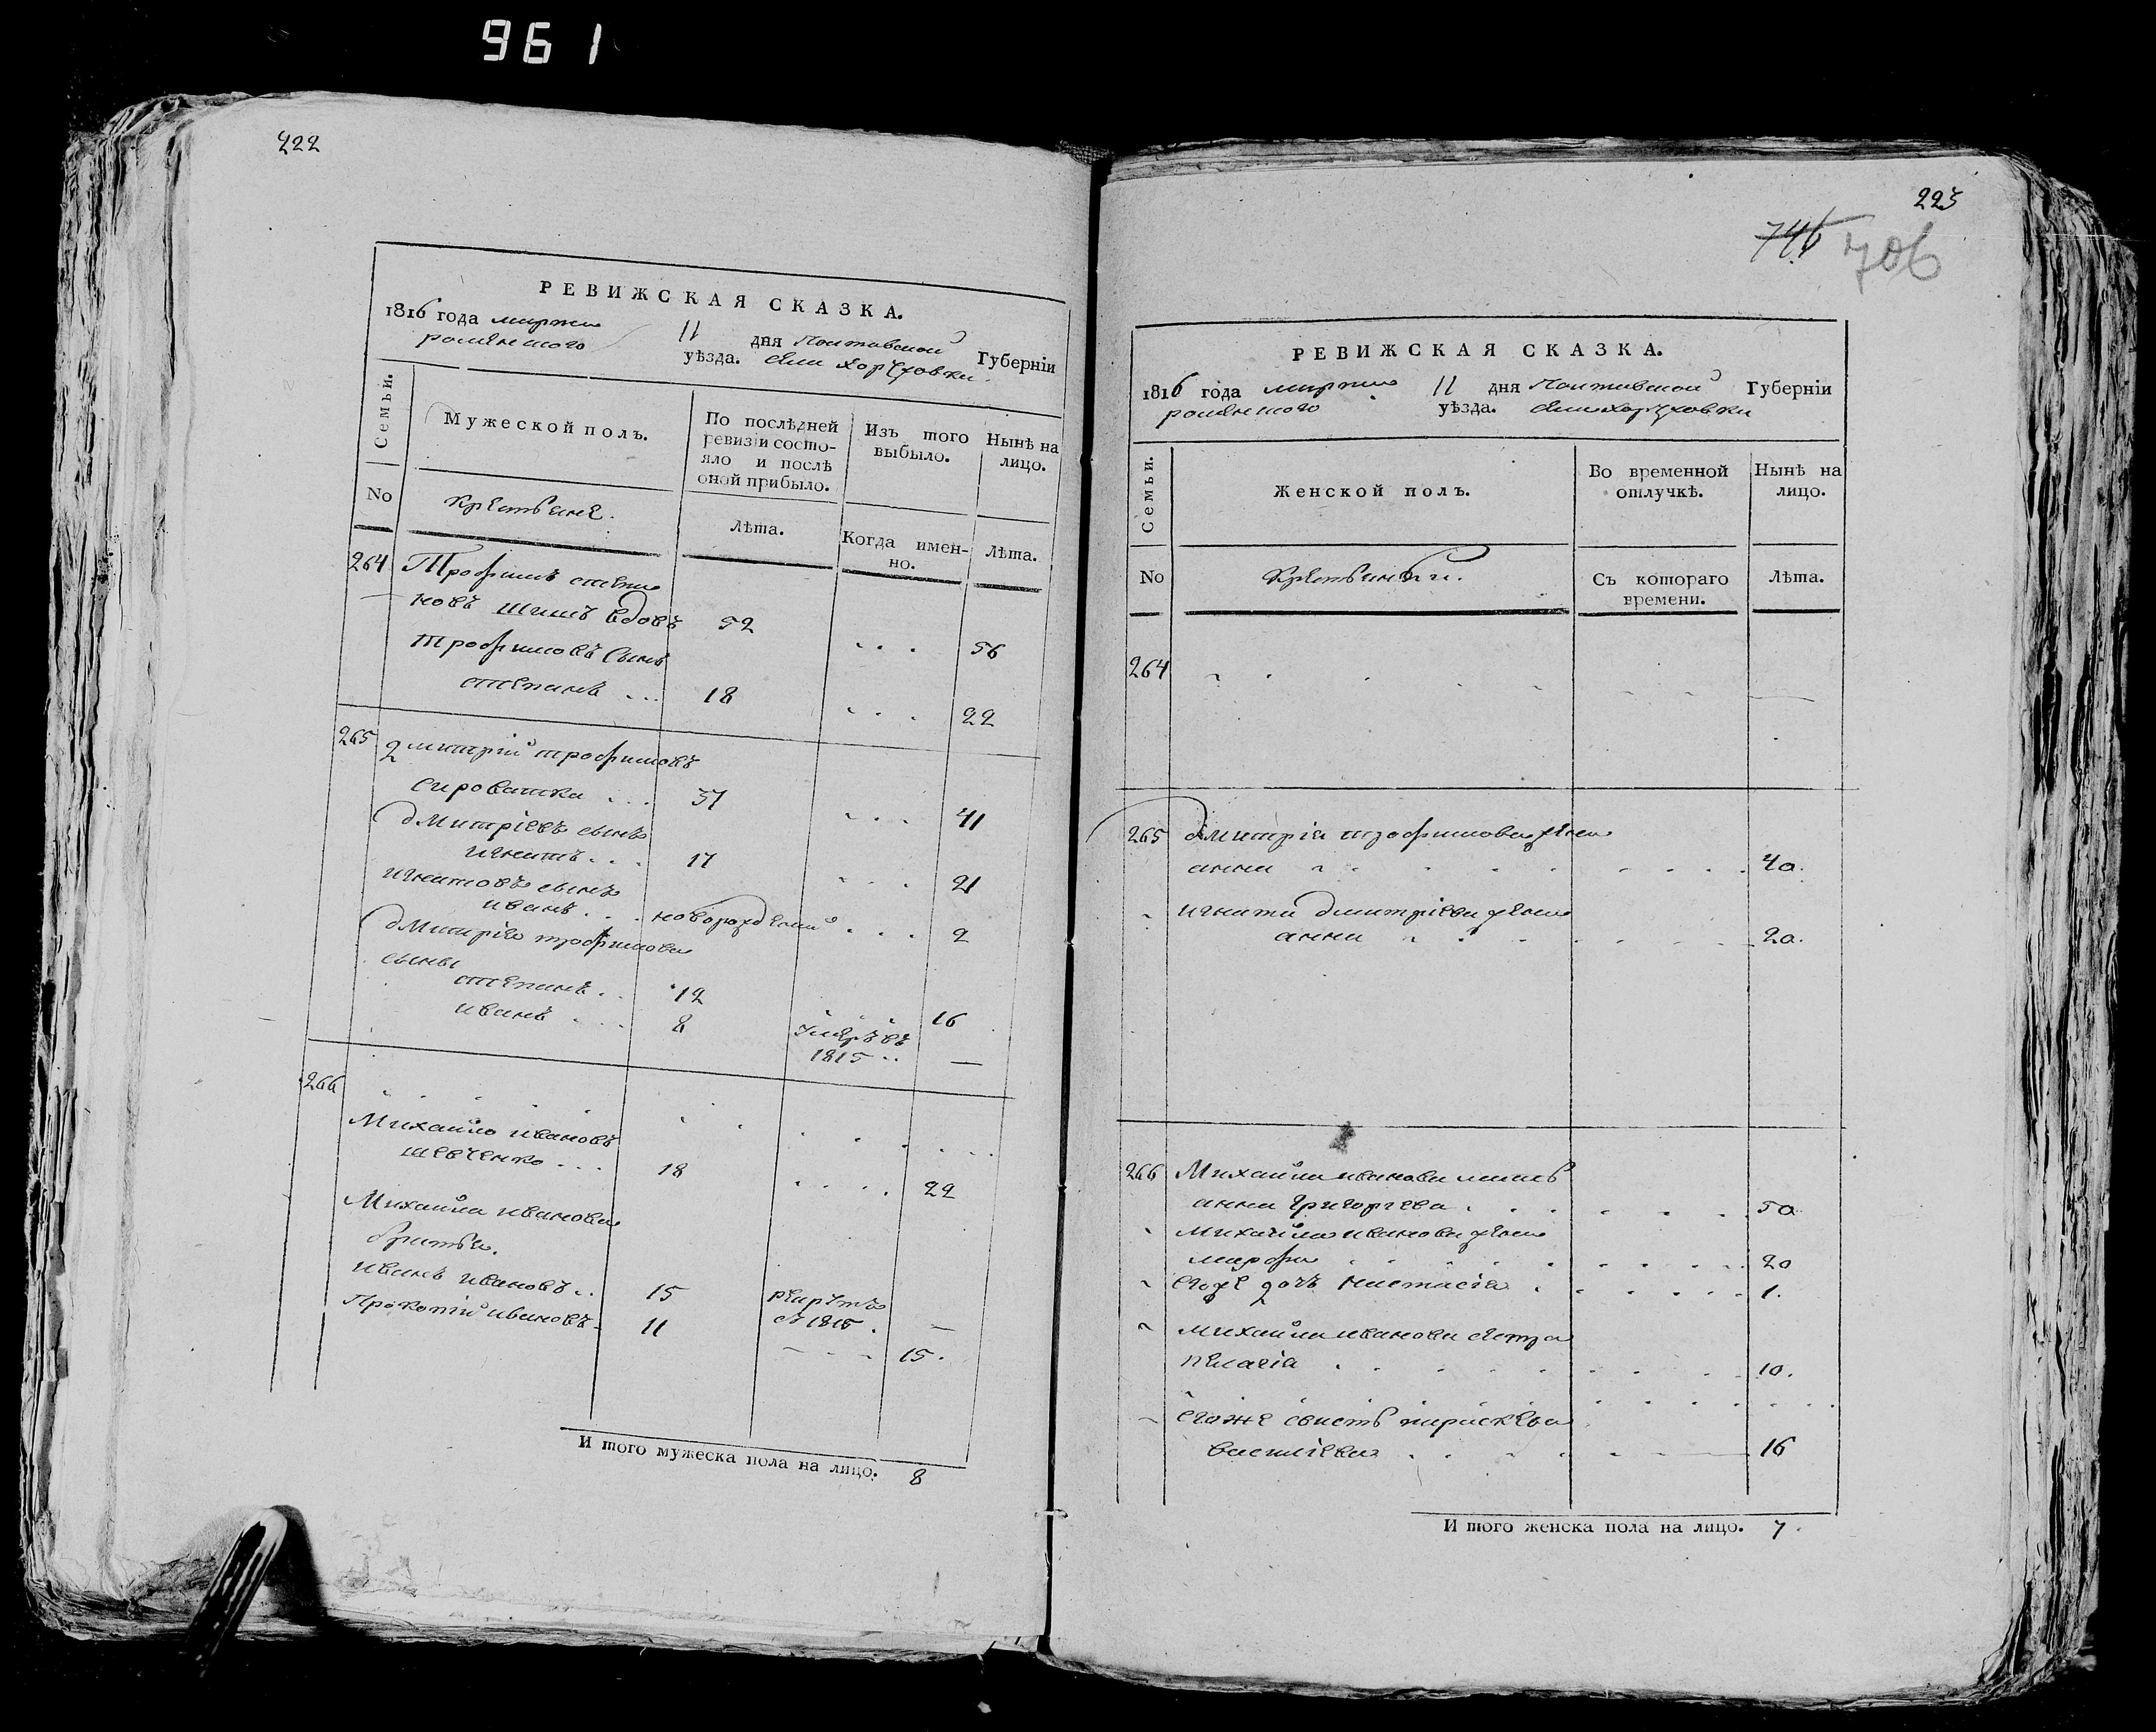 961
222
РЕВИЖСКАЯ СКАЗКА.
1816 года марта 11 дня Полтавской Губерніи
роменского уѣзда. села хоружовки.
Семьи.
Мужеской полъ.
По послѣдней ревизіи состояло и послѣ оной прибыло.
Изъ того выбыло.
Нынѣ на лицо.
No
Крестьяне.
Лѣта.
Когда именно.
Лѣта.
264 Трофимъ степа
новъ вдовъ 52 . . . 56
трофимовъ сынъ
степанъ . . . 18 . . . 22
265 Дмитрій трофимовъ
сироватка . . . 37 . . . 41
дмитріевъ сынъ
игнатъ . . . 17 . . . 21
игнатовъ сынъ
иванъ . . . новорожденый . . . 2
дмитрія трофимова
сыны
степанъ . . 12 . . . 16
иванъ . . . 8 умеръ въ
1815 . . —
266
Михайло ивановъ
шевченко . . . 18 . . . . 22
Михайла иванова
братья.
иванъ ивановъ . . 15 рекрутъ
въ 1815 . —
Прокопій ивановъ 11 - - - 15.
И того мужеска пола на лицо. 8
223
746 706
РЕВИЖСКАЯ СКАЗКА.
1816 года марта 11 дня Полтавской Губерніи
роменского уѣзда. села хоружовки
Семьи.
Женской полъ.
Во временной отлучкѣ.
Нынѣ на лицо.
No
Крестьянки.
Съ котораго времени.
Лѣта.
264
265 дмитрія трофимова жена
анна . . . . . . . . 40.
игната дмитріева жена
анна . . . . . . . 20.
266 Михайла иванова мать
анна григорьева . . . . . . 50
михайла иванова жена
марфа . . . . . . . 20
егоже дочь настасія . . . . . . 1.
михайла иванова сестра
пелагія . . . . . . . 10.
егоже свесть параскева
васильева . . . . . 16
И того женска пола на лицо. 7.